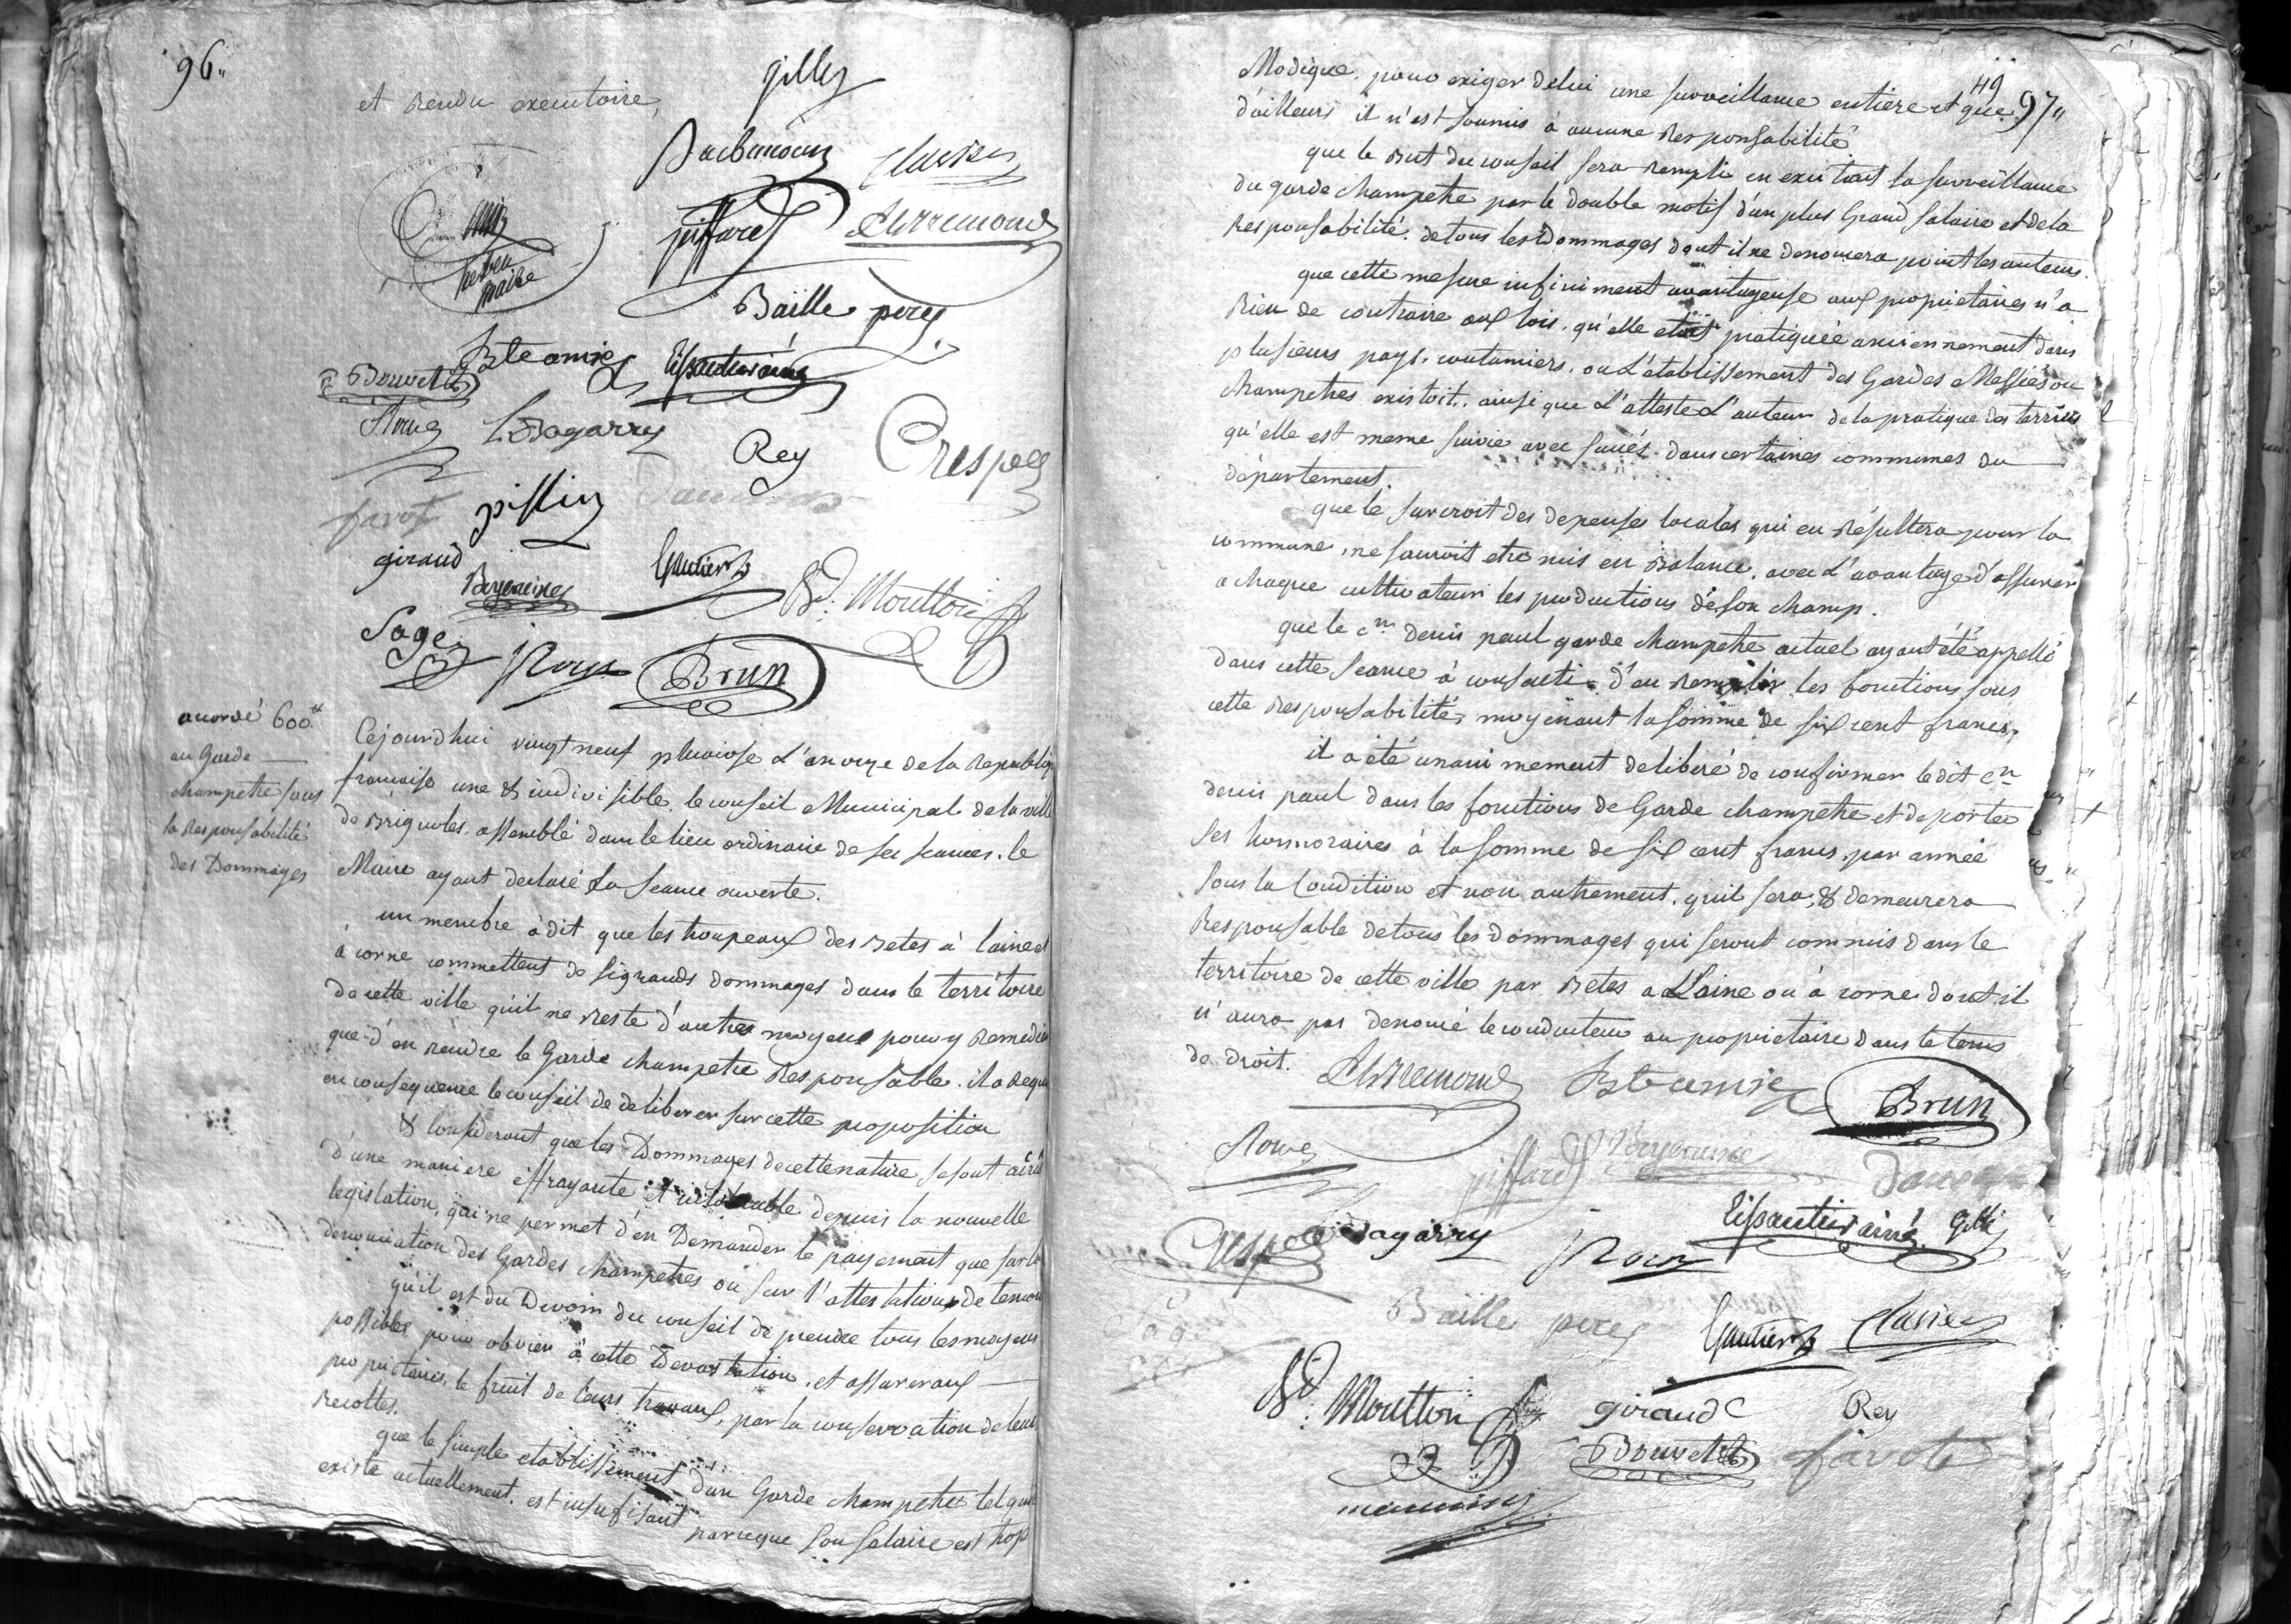 96"
et rendu executoire,
gilly
Barbaroux
Clavier
piffard
Clerremond
maire
Baille pere
Bte amic
Bouvet
Lissautier ainé
Roux
L Dagarry
Rey
Crespe
favot
pissin
giraud
Gautier
Bd. Moutton
Sage
J Roux
Brun
accordé 600ᵗᵗ
au Garde
champetre sous
la responsabilité
des Dommages
Cejourd'hui vingt neuf pluviose L'an onze de la Republiq
francaise une & indivisible, le conseil Municipal de la ville
de Brignoles, assemblé dans le lieu ordinaire de ses seances. le
Maire ayant declaré La seance ouverte.
un membre à dit que les troupeaux des Betes à laine et
à corne commettent de si grands dommages dans le territoire
de cette ville qu'il ne reste d'autre moyens pour y Remedier
que d'en rendre le Garde champetre Responsable. il a requis
en consequence le conseil de deliberer sur cette proposition
& Considerant que les Dommages de cette nature se sont
d'une maniere effrayante et depuis la nouvelle
legislation, qui ne permet d'en Demander le payement que sur la
denonciation des Gardes champetres ou sur l'attestation de temoin
qu'il est du Devoir du conseil de prendre tous les moyens
possibles pour obvier à cette Devastation, et assurer aux
proprietaires, le fruit de leurs travaux, par la conservation de leurs
recoltes.
que le simple etablissement d'un Garde champetre tel qu'il
existe actuellement, est insufisant parceque son salaire est trop
49
97"
Modique, pour exiger de lui une surveillance entiere et que
d'ailleurs il n'est soumis à aucune Responsabilité
que le But du conseil sera rempli en excitant la surveillance
du garde champetre par le double motif d'un plus Grand salaire et de la
Responsabilité. de tous les Dommages dont il ne denoncera point les auteurs.
que cette mesure infiniment avantageuse aux proprietaires n'a
Rien de contraire aux lois. qu'elle etoit pratiquée anciennement dans
plusieurs pays coutumiers. ou L'etablissement des Gardes Messiers ou
champetres existoit. ainsi que L'atteste L'auteur de la pratique des terriers
qu'elle est meme suivie avec succés dans certaines communes du
département.
que le surcroit des depenses locales qui en Résultera pour la
commune, ne sauroit etre mis en Balance, avec L'avantage d'assurer
a chaque cultivateur les productions de son champ.
que le cen denis paul garde champetre actuel ayant été appellé
dans cette seance à consenti d'en remplir les fonctions sous
cette Responsabilité, moyenant la somme de six cent francs,
il a été unanimement deliberé de confirmer le dit cen
denis paul dans les fonctions de Garde champetre et de porter
ses honnoraires à la somme de six cent francs par année
sous la Condition et non autrement, qu'il sera, & demeurera
Responsable de tous les dommages qui seront commis dans le
territoire de cette ville par Betes a Laine ou à corne dont il
n'aura pas denoncé le conducteur ou proprietaire dans le tems
de droit.
Clerremond
Bte amic
Brun
Roux
piffard
Crespe
Dagarry
J Roux
Lissautier ainé
Gilli
Sage
Baille pere
Gautier
Clavier
Bd. Moutton
giraud
Rey
Bouvet
favot